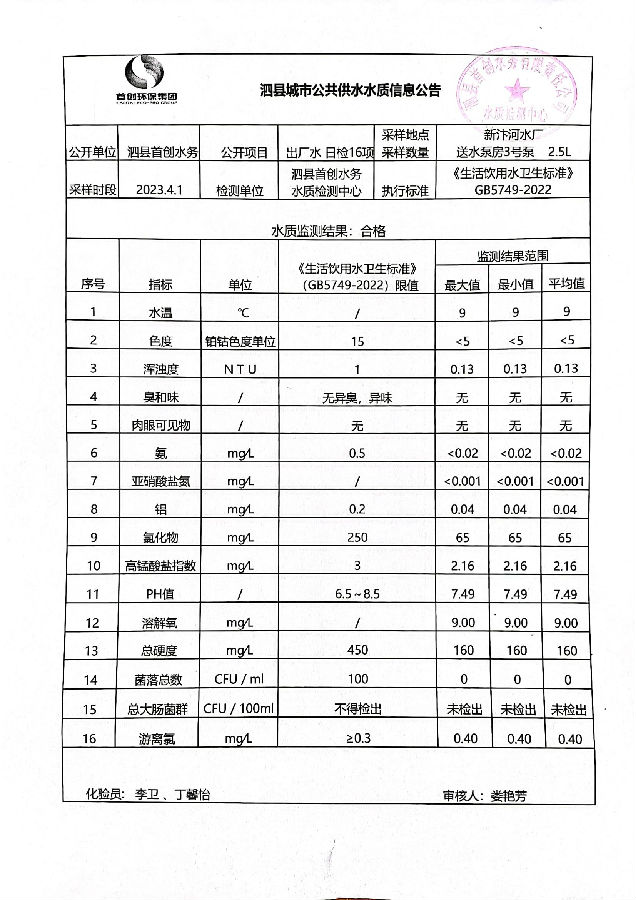 首创环保集团
泗县城市公共供水水质信息公告
泗县首创水务有限责任公司
水质监测中心
公开单位 泗县首创水务 公开项目 出厂水 日检16项 采样地点 采样数量 新汴河水厂 送水泵房3号泵 2.5L
采样时段 2023.4.1 检测单位 泗县首创水务 水质检测中心 执行标准 《生活饮用水卫生标准》 GB5749-2022
水质监测结果：合格
序号 指标 单位 《生活饮用水卫生标准》（GB5749-2022）限值 监测结果范围
最大值 最小值 平均值
1 水温 ℃ / 9 9 9
2 色度 铂钴色度单位 15 <5 <5 <5
3 浑浊度 NTU 1 0.13 0.13 0.13
4 臭和味 / 无异臭，异味 无 无 无
5 肉眼可见物 / 无 无 无 无
6 氨 mg/L 0.5 <0.02 <0.02 <0.02
7 亚硝酸盐氮 mg/L / <0.001 <0.001 <0.001
8 铝 mg/L 0.2 0.04 0.04 0.04
9 氯化物 mg/L 250 65 65 65
10 高锰酸盐指数 mg/L 3 2.16 2.16 2.16
11 PH值 / 6.5~8.5 7.49 7.49 7.49
12 溶解氧 mg/L / 9.00 9.00 9.00
13 总硬度 mg/L 450 160 160 160
14 菌落总数 CFU / ml 100 0 0 0
15 总大肠菌群 CFU / 100ml 不得检出 未检出 未检出 未检出
16 游离氯 mg/L ≥0.3 0.40 0.40 0.40
化验员：李卫 、丁馨怡 审核人：娄艳芳